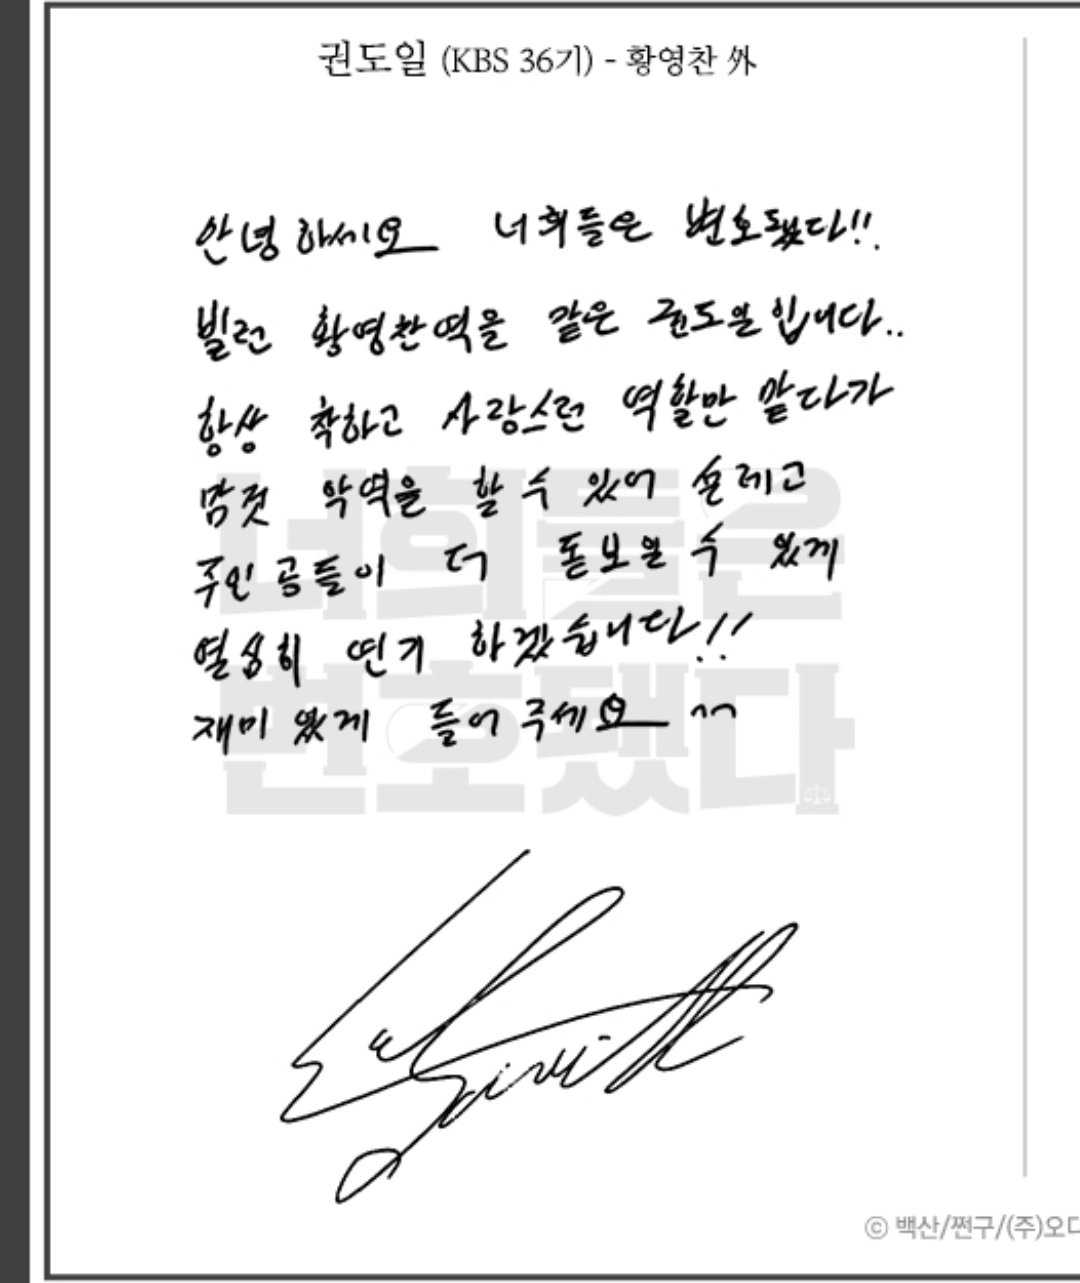 권도일 (KBS 36기) - 황영찬 外
안녕하세요 너희들은 변호됐다!!
빌런 황영찬역을 맡은 권도일입니다..
항상 착하고 사랑스런 역할만 맡다가
맘껏 악역을 할 수 있어 설레고
주인공들이 더 돋보일 수 있게
열심히 연기 하겠습니다!!
재미있게 들어주세요 ^^
너희들은
변호됐다
© 백산/쩐구/(주)오디